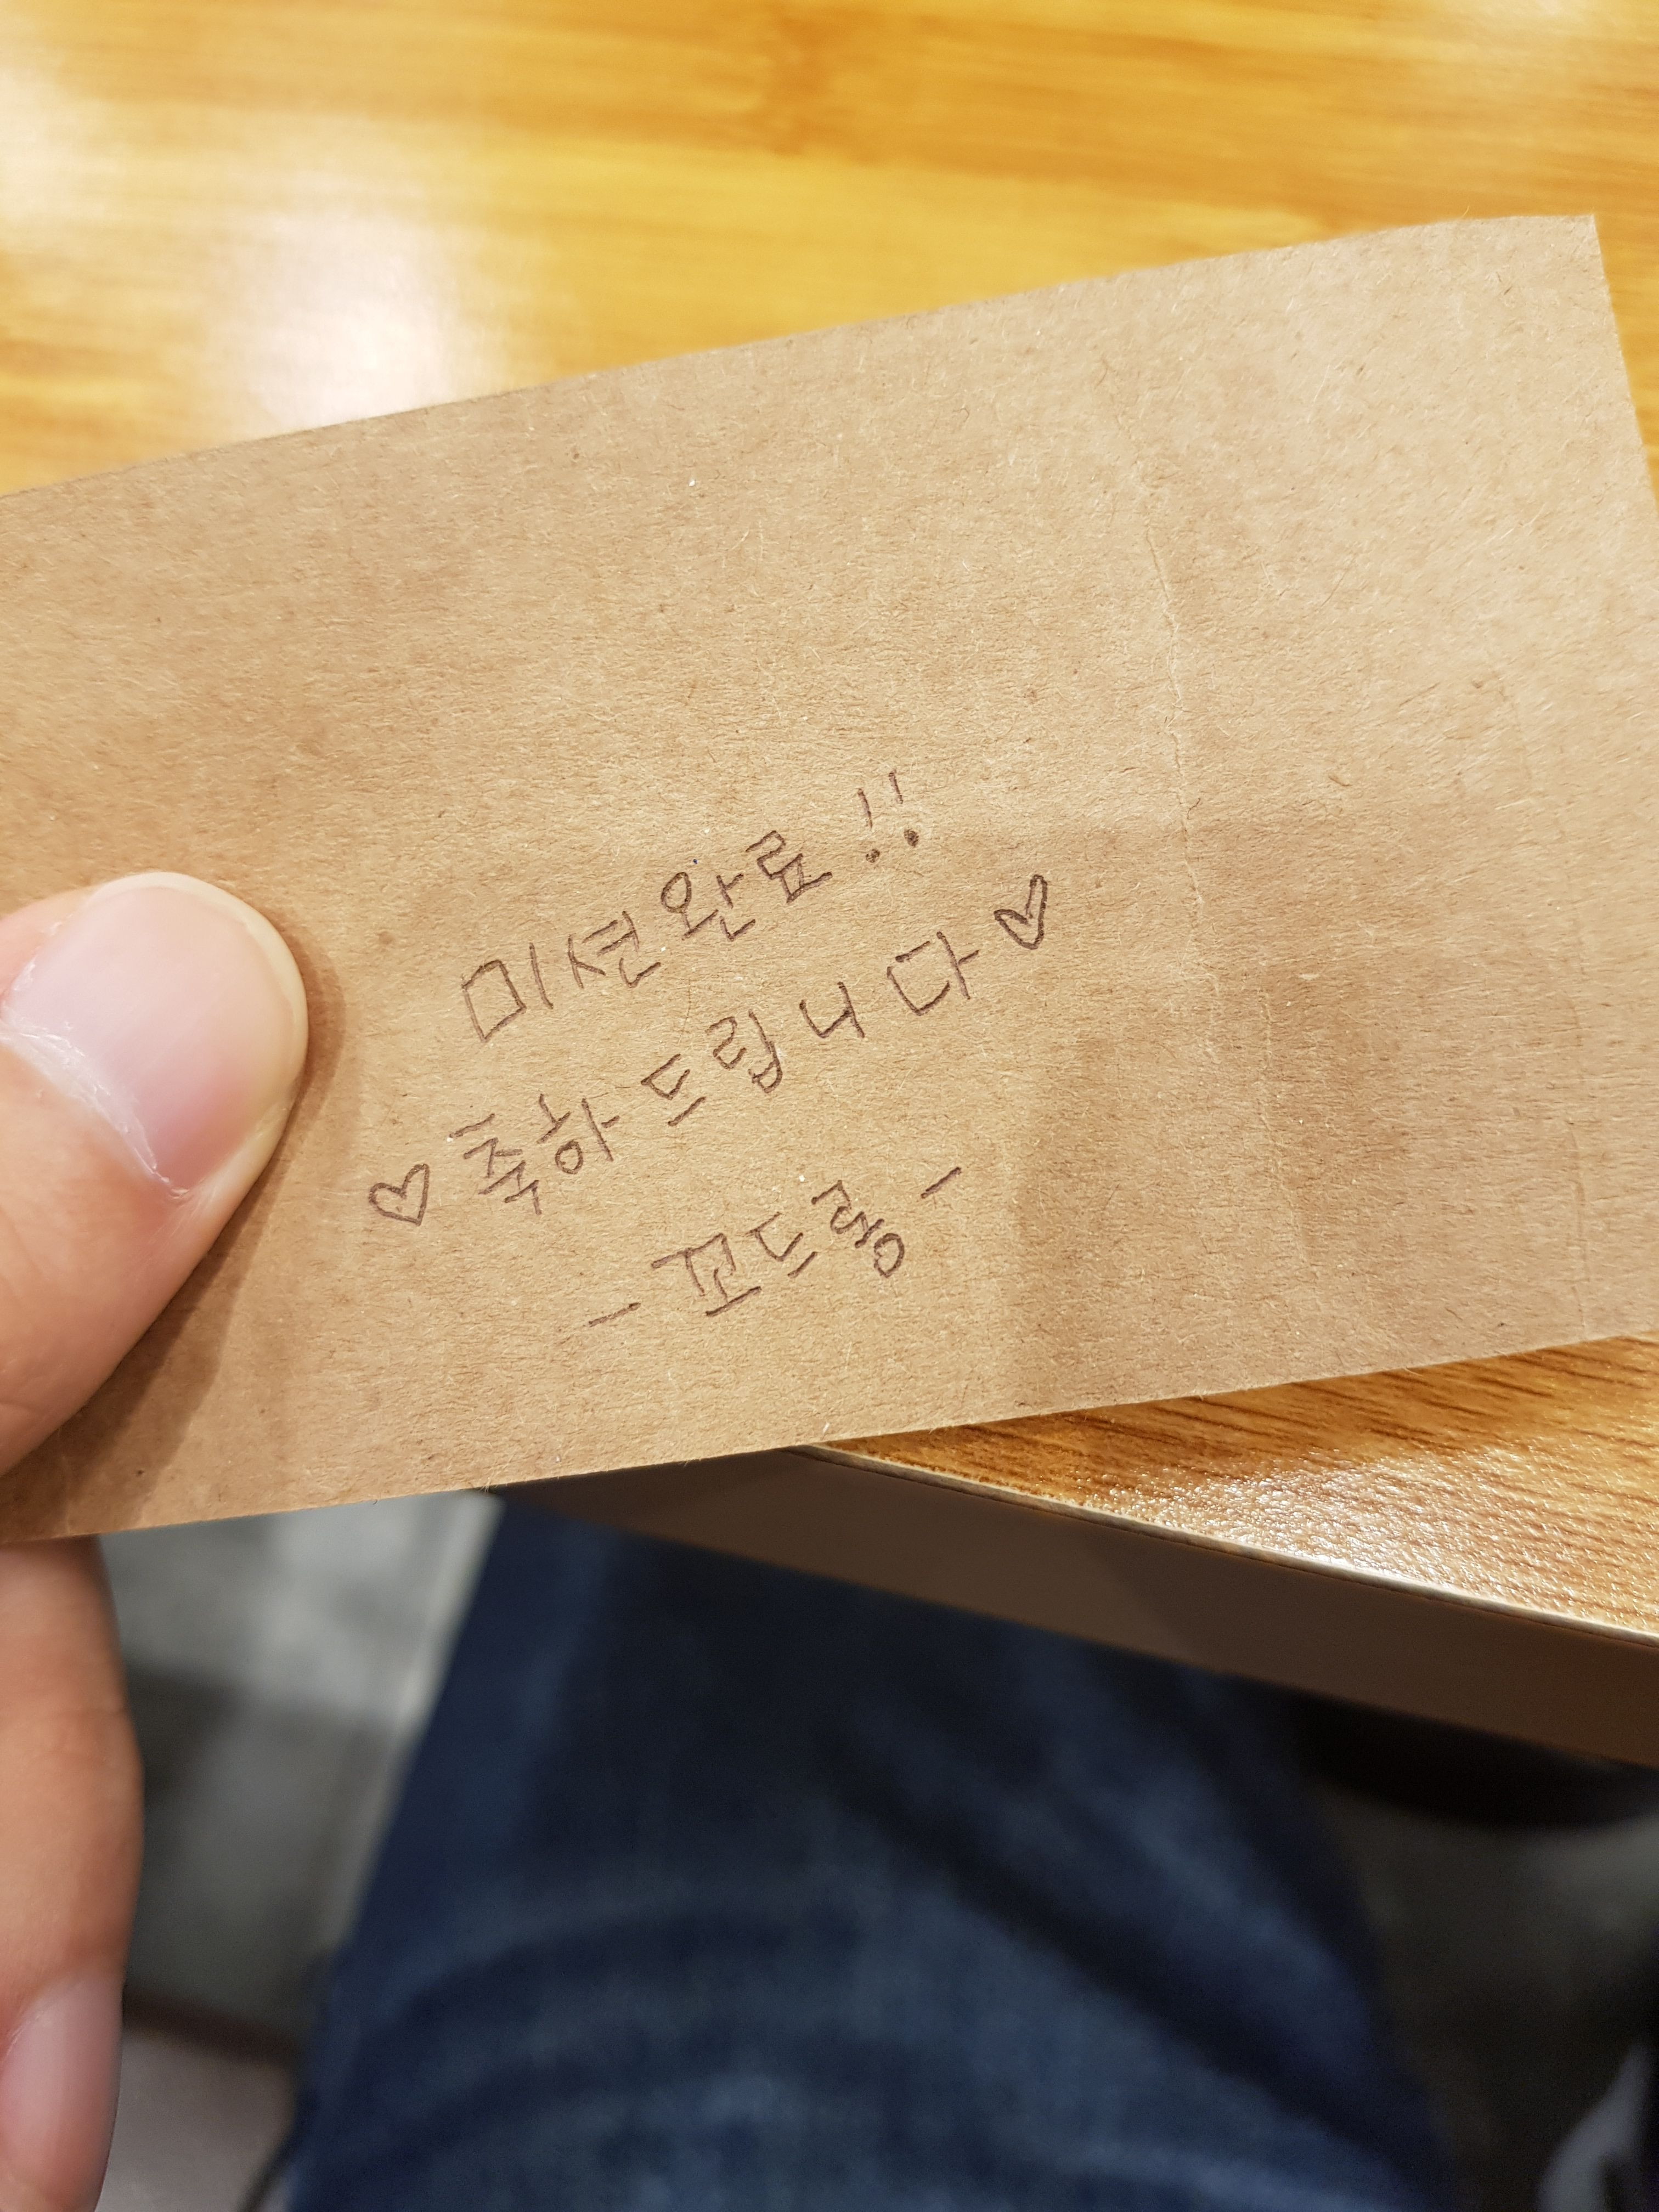 미션완료!!
♡축하드립니다♡
-꼬드롱-